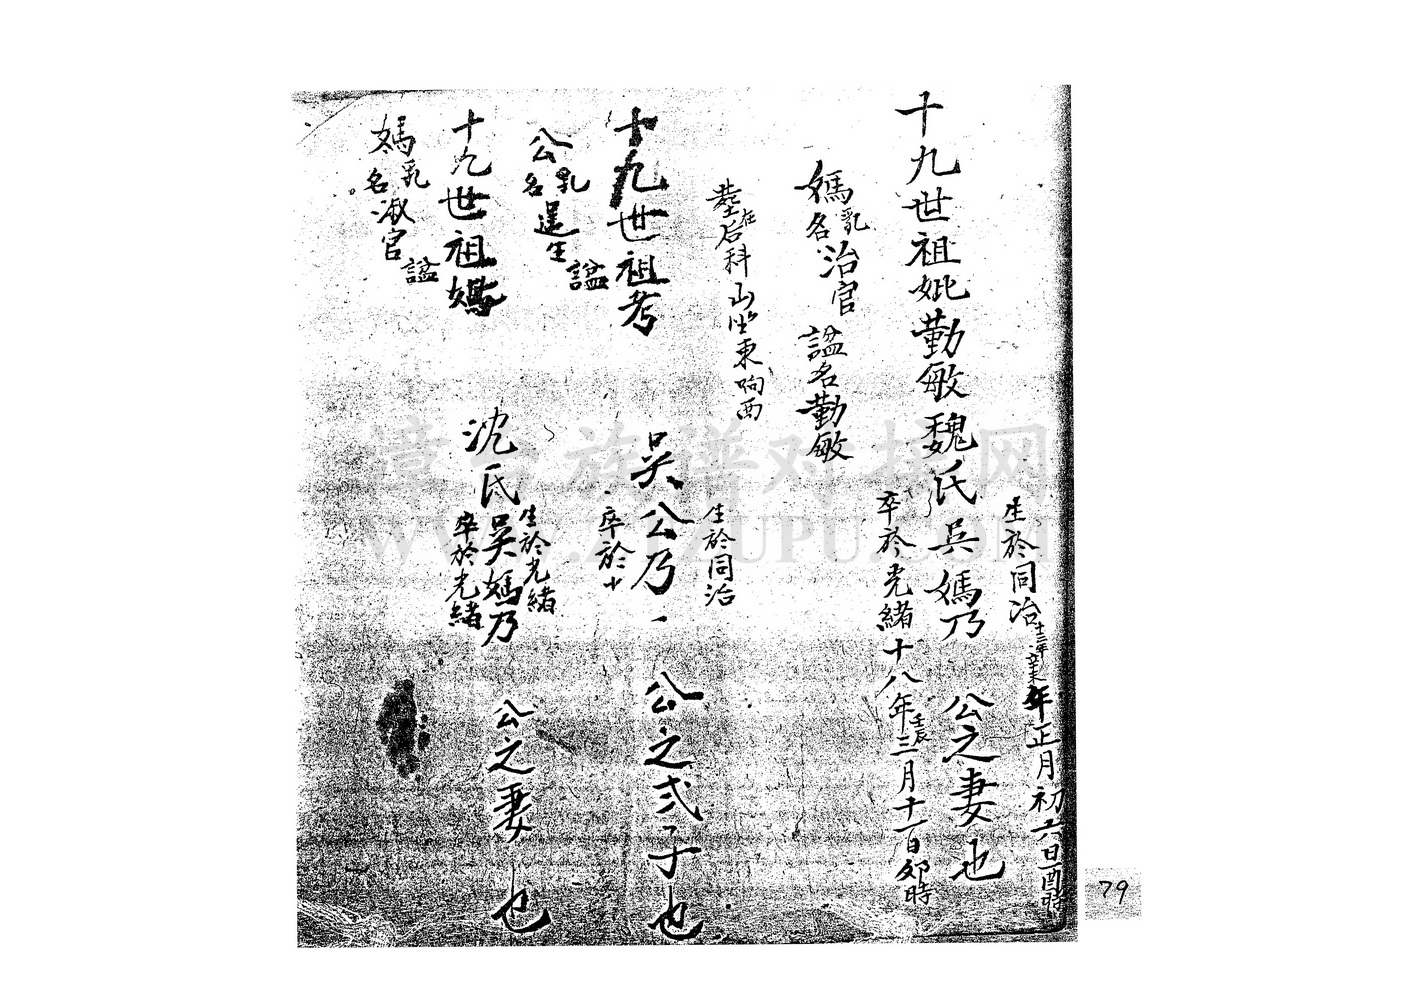 生於同治十三年年正月初六日酉時
十九世祖妣勤敏魏氏吳媽乃 公之妻也
卒於光緒十八年壬辰三月十一日卯時
媽乳名治官 諡名勤敏
在后科山坐東响西
生於同治
十九世祖考 吳公乃 公之弍子也
卒於
公乳名暹生 諡
生於光緒
十九世祖媽 沈氏吳媽乃 公之妻也
卒於光緒
媽乳名淑官 諡
79
漳台族谱对接网
WWW.ZTZUPU.COM